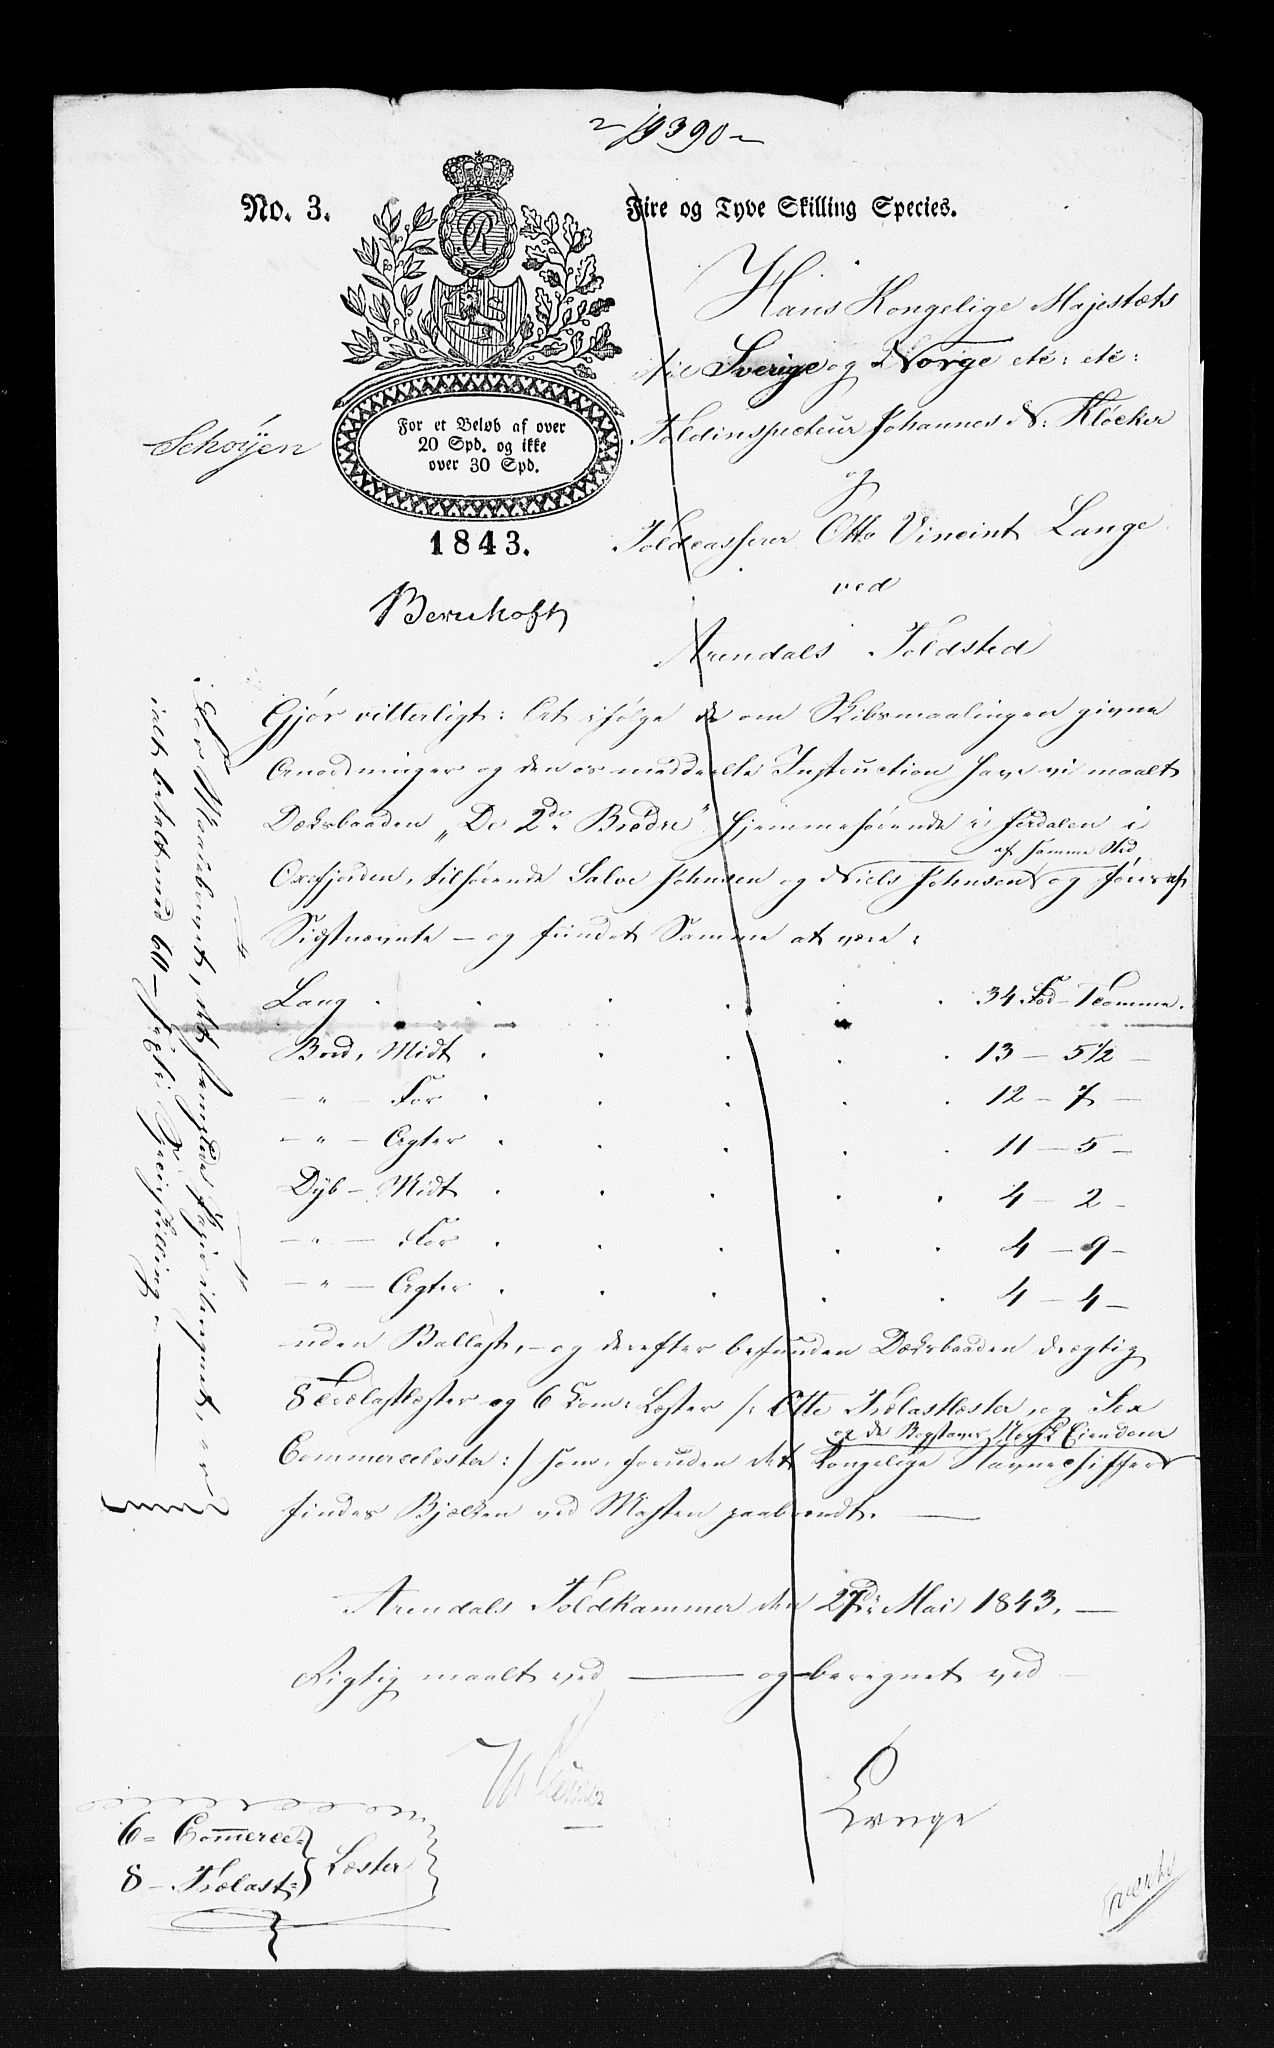 390
No. 3.
Fire og Tyve Skilling Species.
R
For et Beløb af over
20 Spd. og ikke
over 30 Spd.
1843.
Schøyen
Hans Kongelige Majestæts
til Sverige og Norge etc: etc:
Toldinspecteur Johannes N. Kløcker
og
Toldcasserer Otto Vincint Lange
ved
Arendals Toldsted
Gjør vitterligt: At ifølge de om Skibsmaalingen givne
Anordninger og den os meddeelte Instruction have vi maalt
Dæksbaaden „De 2de Brødre" hjemmehørende i Ferdalen i
af samme Sted
Oxefjorden, tilhørende Salve Johnsen og Niels Johnsen og føres af
Sidstnævnte – og fundet Samme at være:
Lang . . . . . . 34 Fod – 1 Tomme.
Bred, Midt . . . . . 13 – 5 1/2 –
– " – For . . . . . 12 – 7 –
– " – Agter . . . . . 11 – 5 –
Dyb – Midt . . . . . 4 – 2 –
– " – For . . . . . 4 – 9 –
– " – Agter . . . . . 4 – 4 –
uden Ballast, – og derefter befunden Dæksbaaden drægtig
8 Trælastlæster og 6 Com: Læster /: Otte Trælastlæster, og Sex
og de Bogstaver Norsk Eiendom
Commercelæster :/ som, foruden det Kongelige Navnechiffer
findes Bjælken ved Masten paabrændt. –
Arendals Toldkammer den 27de Mai 1843. –
Rigtig maalt ved – og beregnet ved
Lange
6 = Commerce=
8 – Trælast=
Læster
For Maalebrevet, det
ialt betalt med 60 –